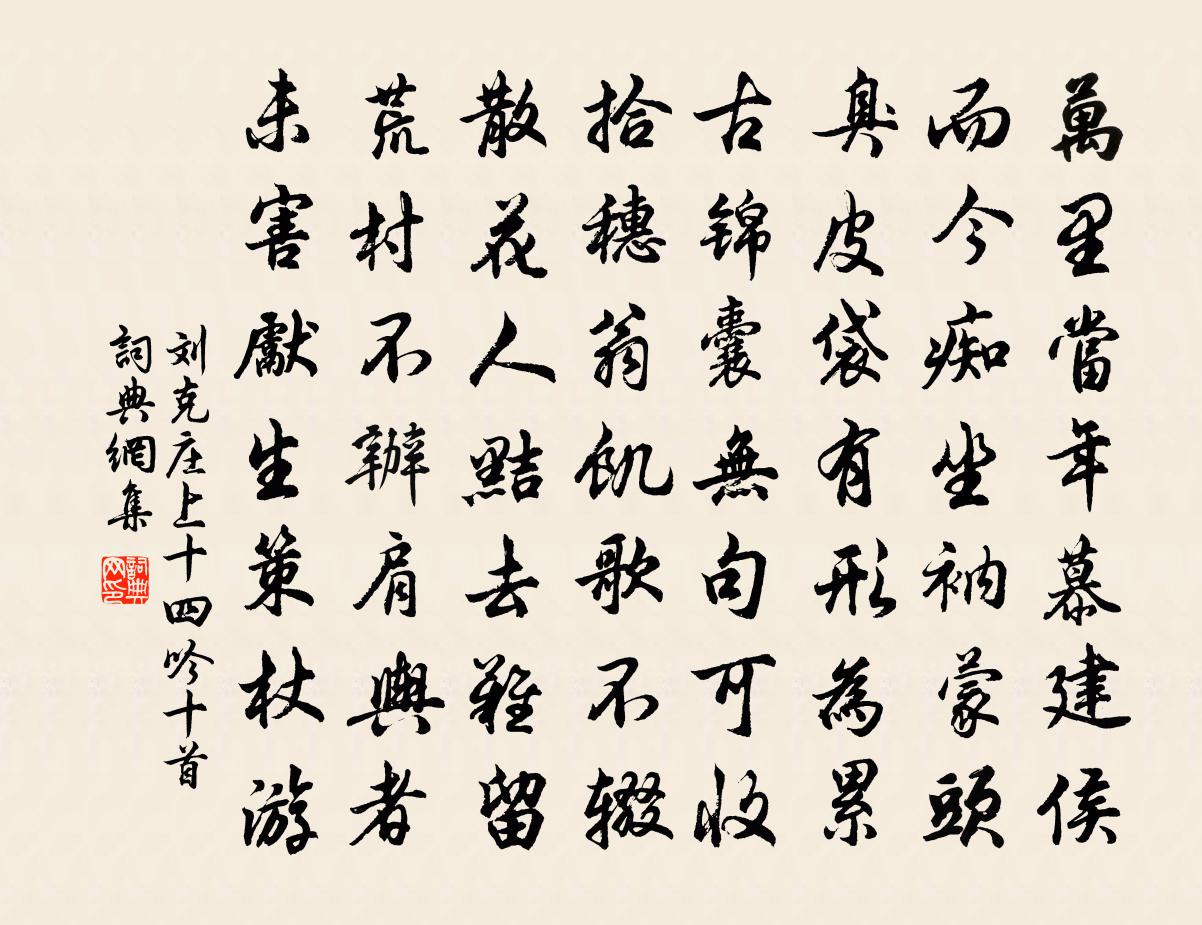 萬里當年慕建侯
而今痴坐衲蒙頭
臭皮袋有形為累
古锦囊無句可收
拾穗翁飢歌不辍
散花人黠去難留
荒村不辦肩輿者
未害獻生策杖游
刘克庄上十四吟十首
詞典網集
詞典网印